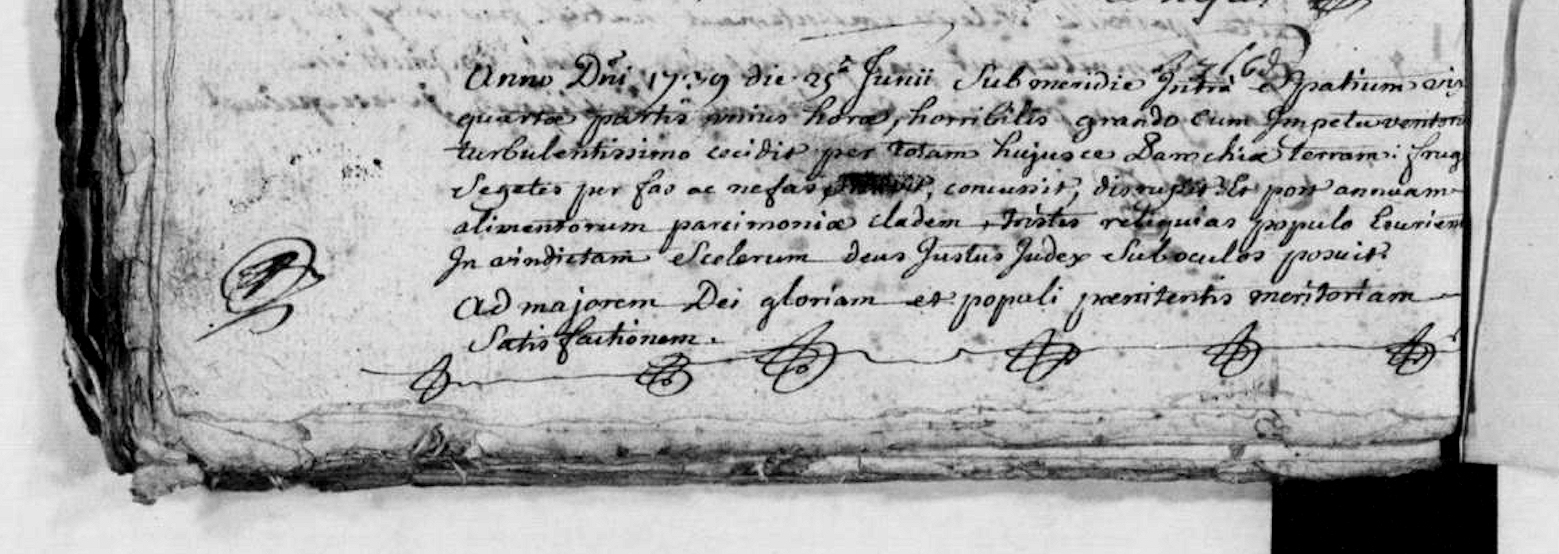 Anno Dñi 1739 die 25ª Junii Sub meridie Intra Spatium vix
quartæ partis unius horæ, horribilis grando cum Impetu ventoru
turbulentissimo cecidit per Totam hujusce Parochiæ terram: frug
Segetes per fas ac nefas, concussit, disrupit. Et post annuam
alimentorum parcimoniæ cladem, tristes reliquias populo Esurien
In vindictam Scelerum deus Justus Judex Sub oculos posuit
Ad majorem Dei gloriam et populi pœnitentis meritoriam
Satisfactionem.